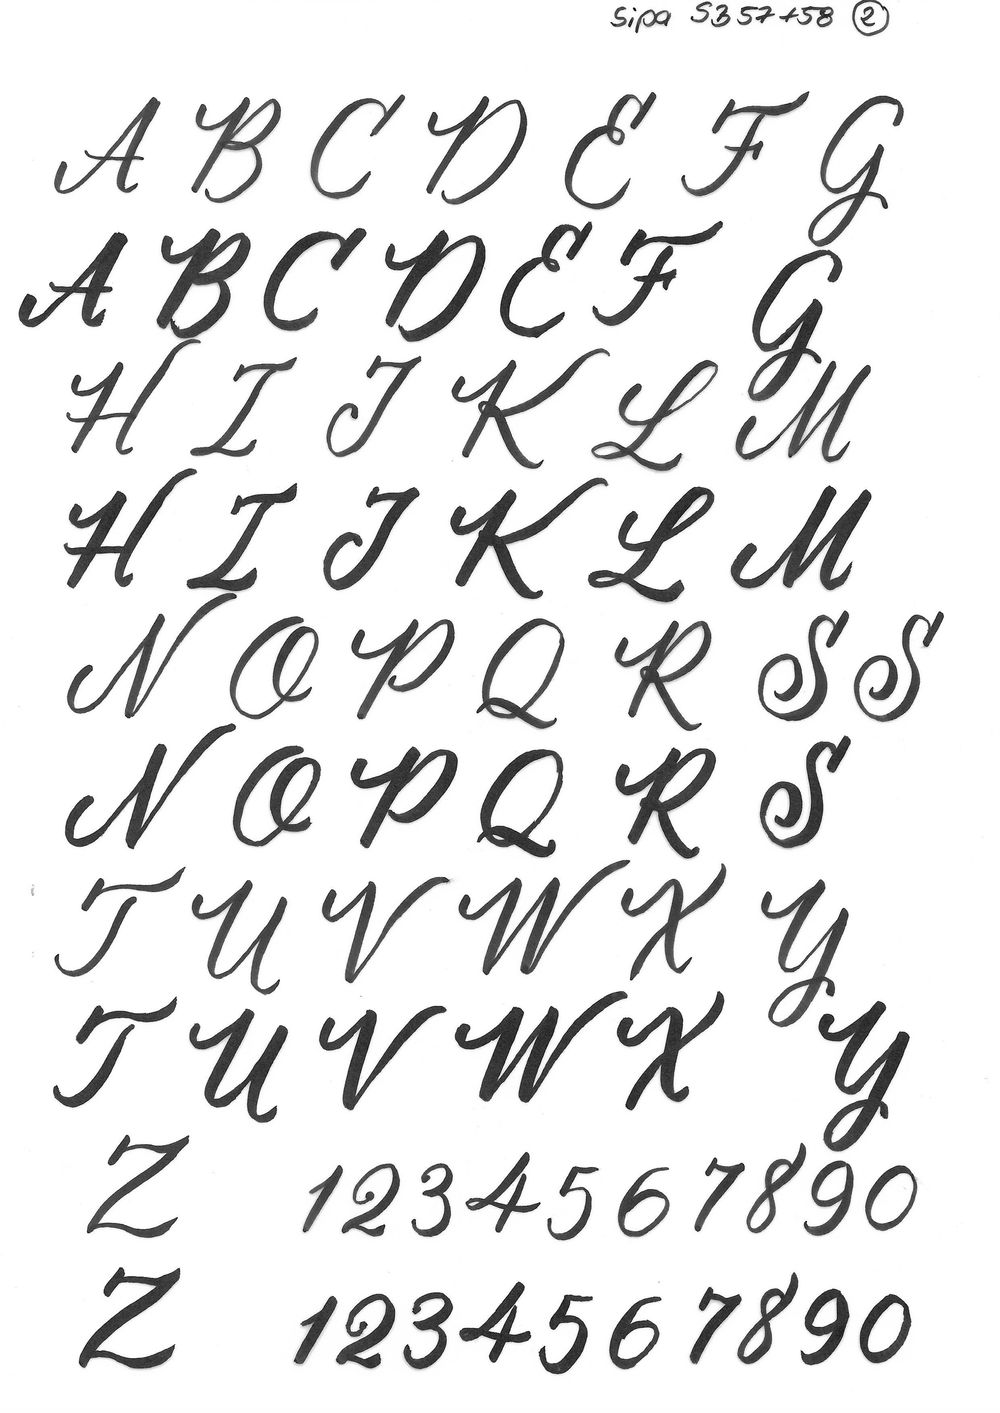 Sipa SB 57+58 ②
A B C D E F G
A B C D E F G
H I J K L M
H I J K L M
N O P Q R S S
N O P Q R S
T U V W X Y
T U V W X Y
Z 1234567890
Z 1234567890